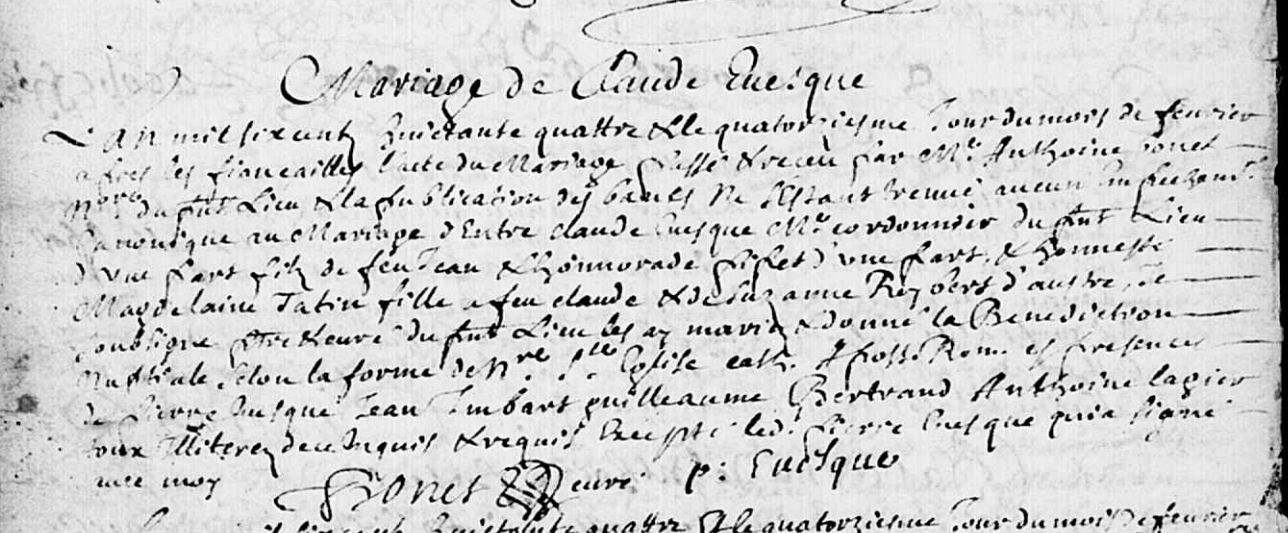 Mariage de Claude Evesque
L'an mil six centz huictante quattre & le quatorziesme Jour du mois de fevrier
apres les fiançailles l'acte du Mariage passé & receu par Me Anthoine
Nore du pnt Lieu & la publication des bancts Ne s'estant treuvé aucun
Canonique au Mariage d'Entre Claude Evesque Me cordonnier du pnt Lieu
d'une part filz de feu Jean & honnorade d'une part, & honneste
Magdelaine Tatin fille a feu Claude & de Suzanne Reybert d'autre, Je
soubsigné ptre & curé du pnt Lieu les ay mariez & donné la Benediction
Nuptiale selon la forme de Nre Ste Eglise cath. Aposto Rom. es presences
de Pierre Evesque Jean Imbart guilleaume Bertrand Anthoine lagier
tous Illiterez de ce Inquis & requis Excepté led. Pierre Evesque qui a signé
avec moy
curé p: Evesque
huictante quattre & le quatorziesme Jour du mois de fevrier